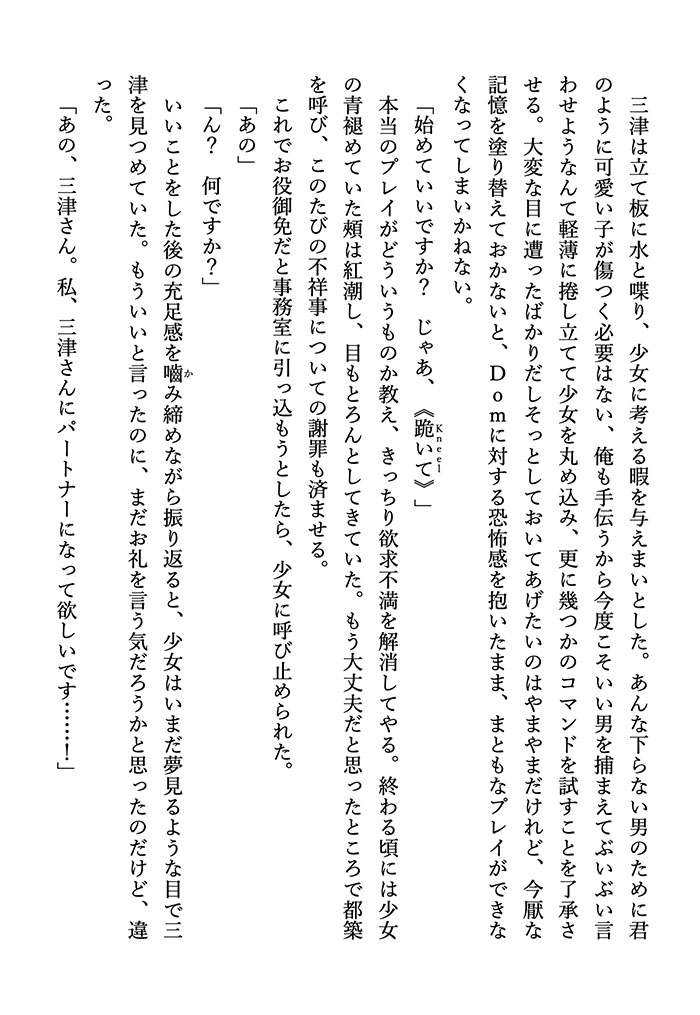 三津は立て板に水と喋り、少女に考える暇を与えまいとした。あんな下らない男のために君
のように可愛い子が傷つく必要はない、俺も手伝うから今度こそいい男を捕まえてぶいぶい言
わせようなんて軽薄に捲し立てて少女を丸め込み、更に幾つかのコマンドを試すことを了承さ
せる。大変な目に遭ったばかりだしそっとしておいてあげたいのはやまやまだけれど、今厭な
記憶を塗り替えておかないと、Ｄｏｍに対する恐怖感を抱いたまま、まともなプレイができな
くなってしまいかねない。
「始めていいですか？　じゃあ、《跪いて》」
Kneel
　本当のプレイがどういうものか教え、きっちり欲求不満を解消してやる。終わる頃には少女
の青褪めていた頰は紅潮し、目もとろんとしてきていた。もう大丈夫だと思ったところで都築
を呼び、このたびの不祥事についての謝罪も済ませる。
　これでお役御免だと事務室に引っ込もうとしたら、少女に呼び止められた。
「あの」
「ん？　何ですか？」
　いいことをした後の充足感を嚙み締めながら振り返ると、少女はいまだ夢見るような目で三
か
津を見つめていた。もういいと言ったのに、まだお礼を言う気だろうかと思ったのだけど、違
った。
「あの、三津さん。私、三津さんにパートナーになって欲しいです……！」